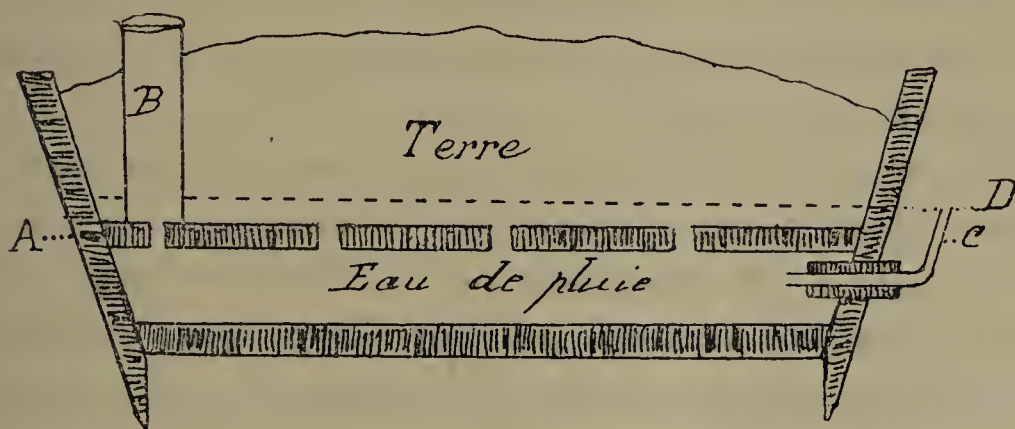 B
Terre
A
D
c
Eau de pluie